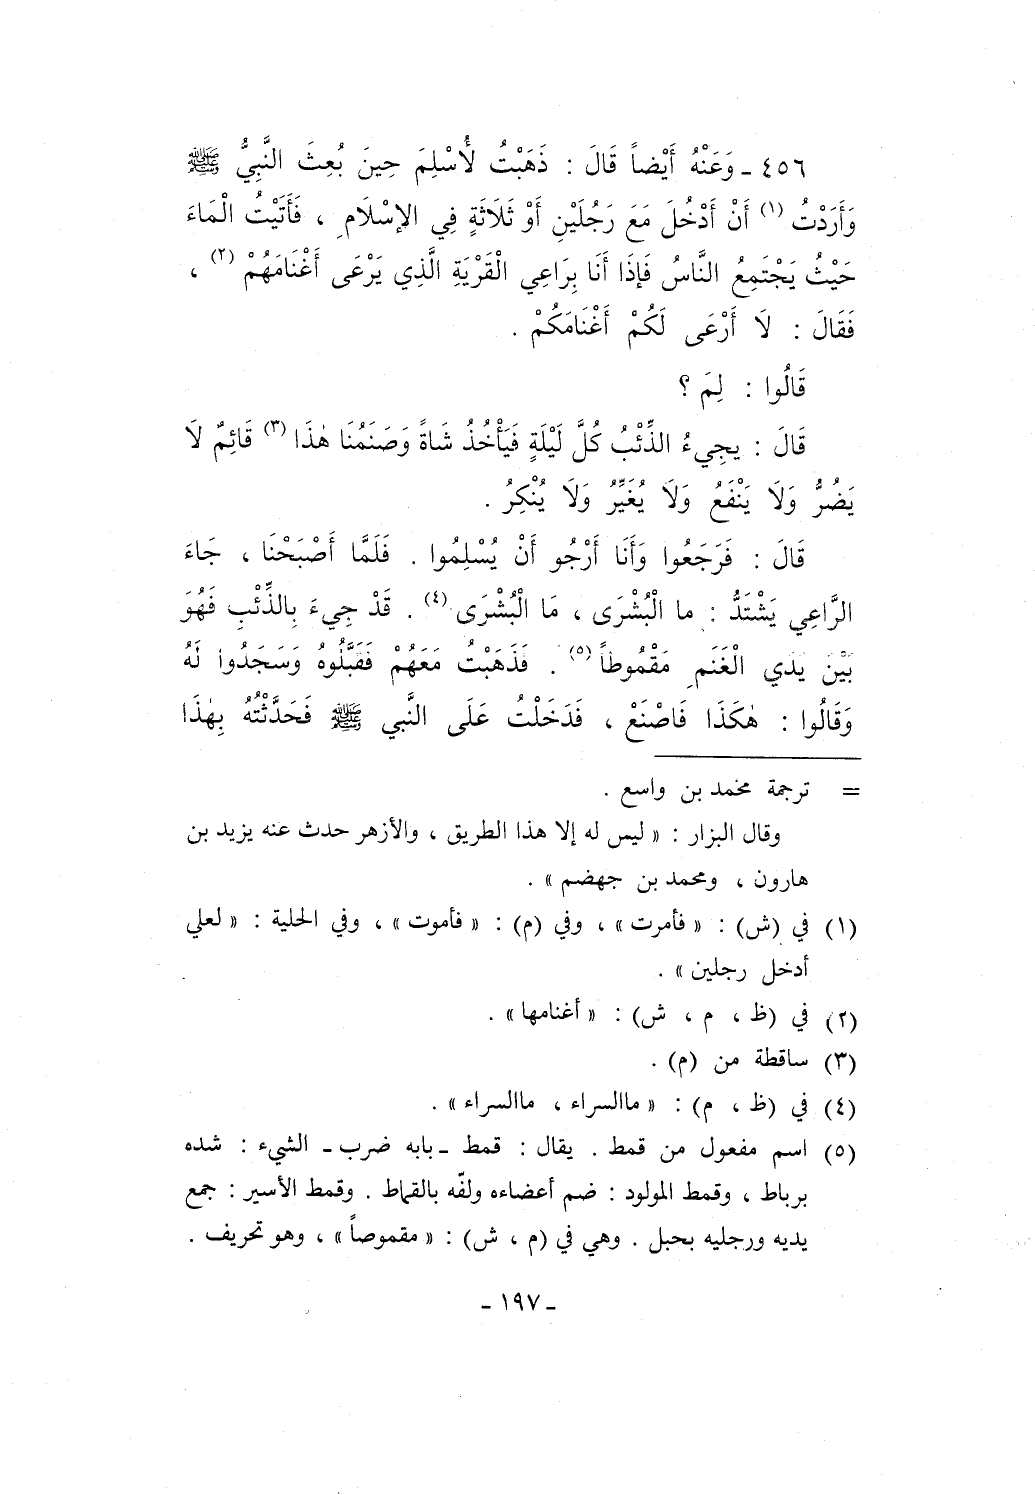 ٤٥٦ ـ وَعَنْهُ أَيْضاً قَالَ : ذَهَبْتُ لأُسْلِمَ حِينَ بُعِثَ النَّبِيُّ ﷺ
وَأَرَدْتُ (١) أَنْ أَدْخُلَ مَعَ رَجُلَيْنِ أَوْ ثَلَاثَةٍ فِي الإِسْلَامِ ، فَأَتَيْتُ الْمَاءَ
حَيْثُ يَجْتَمِعُ النَّاسُ فَإِذَا أَنَا بِرَاعِي الْقَرْيَةِ الَّذِي يَرْعَى أَغْنَامَهُمْ (٢) ،
فَقَالَ : لَا أَرْعَى لَكُمْ أَغْنَامَكُمْ .
قَالُوا : لِمَ ؟
قَالَ : يَجِيءُ الذِّئْبُ كُلَّ لَيْلَةٍ فَيَأْخُذُ شَاةً وَصَنَمُنَا هٰذَا (٣) قَائِمٌ لَا
يَضُرُّ وَلَا يَنْفَعُ وَلَا يُغَيِّرُ وَلَا يُنْكِرُ .
قَالَ : فَرَجَعُوا وَأَنَا أَرْجُو أَنْ يُسْلِمُوا . فَلَمَّا أَصْبَحْنَا ، جَاءَ
الرَّاعِي يَشْتَدُّ : ما الْبُشْرَى ، مَا الْبُشْرَى (٤) . قَدْ جِيءَ بِالذِّئْبِ فَهُوَ
بَيْنَ يَدَي الْغَنَمِ مَقْمُوطاً (٥) . فَذَهَبْتُ مَعَهُمْ فَقَبَّلُوهُ وَسَجَدُوا لَهُ
وَقَالُوا : هٰكَذَا فَاصْنَعْ ، فَدَخَلْتُ عَلَى النَّبِي ﷺ فَحَدَّثْتُهُ بِهٰذَا
= ترجمة محمد بن واسع .
وقال البزار : « ليس له إلا هذا الطريق ، والأزهر حدث عنه يزيد بن
هارون ، ومحمد بن جهضم » .
(١) في (ش) : « فأمرت » ، وفي (م) : « فأموت » ، وفي الحلية : « لعلي
أدخل رجلين » .
(٢) في (ظ ، م ، ش) : « أغنامها » .
(٣) ساقطة من (م) .
(٤) في (ظ ، م) : « ماالسراء ، ماالسراء » .
(٥) اسم مفعول من قمط . يقال : قمط ـ بابه ضرب ـ الشيء : شده
برباط ، وقمط المولود : ضم أعضاءه ولفّه بالقماط . وقمط الأسير : جمع
يديه ورجليه بحبل . وهي في (م ، ش) : « مقموصاً » ، وهو تحريف .
ـ ١٩٧ ـ